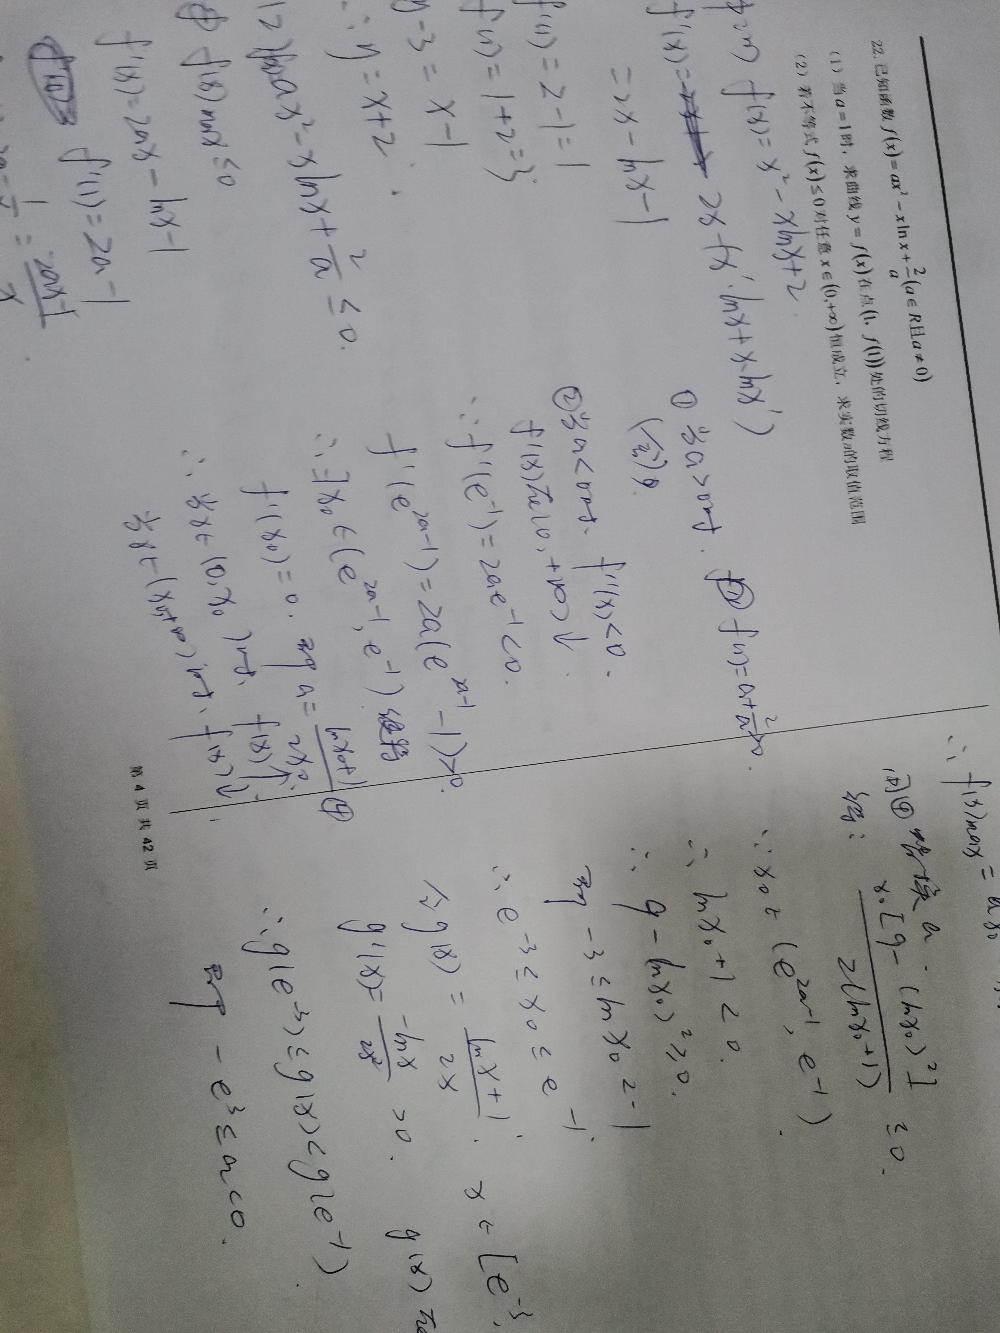 22. 已知函数 f(x) = ax² − x ln x + 2/a (a ∈ R且a ≠ 0)
(1) 当 a = 1时，求曲线 y = f(x) 在点(1, f(1)) 处的切线方程
(2) 若不等式 f(x) ≤ 0 对任意 x ∈ (0, +∞) 恒成立，求实数a的取值范围
f(x) = x² − xlnx + 2
2x − (x′·lnx + x·lnx′)
= 2x − lnx − 1
f′(1) = 2 − 1 = 1
f(1) = 1 + 2 = 3
y − 3 = x − 1
∴ y = x + 2 .
ax² − xlnx + 2/a ≤ 0.
f(x)max ≤ 0
f′(x) = 2ax − lnx − 1
f′(1) = 2a − 1
① 当a>0时. f(1) = a + 2/a > 0.
(舍).
② 当a<0时. f″(x) < 0.
f′(x)在(0, +∞)↓
∵ f′(e⁻¹) = 2ae⁻¹ < 0.
f′(e²ᵃ⁻¹) = 2a(e²ᵃ⁻¹ − 1) > 0.
∴ ∃x₀ ∈ (e²ᵃ⁻¹, e⁻¹)
f′(x₀) = 0. 即 a = (lnx₀+1)/(2x₀) ④
∴ 当x ∈ (0, x₀)时, f(x)↑
当x ∈ (x₀, +∞)时, f(x)↓.
第 4 页 共 42 页
∴ f(x)max =
x₀[9 − (lnx₀)²] / 2(lnx₀+1) ≤ 0.
∵ x₀ ∈ (e²ᵃ⁻¹, e⁻¹).
∴ lnx₀ + 1 < 0.
∴ 9 − (lnx₀)² ≥ 0.
即 −3 ≤ lnx₀ ≤ −1
∴ e⁻³ ≤ x₀ ≤ e⁻¹.
令g(x) = (lnx+1)/2x, x ∈ [e⁻³,
g′(x) = −lnx/2x² > 0. g(x)
∴ g(e⁻³) ≤ g(x) < g(e⁻¹).
即 −e³ ≤ a < 0.